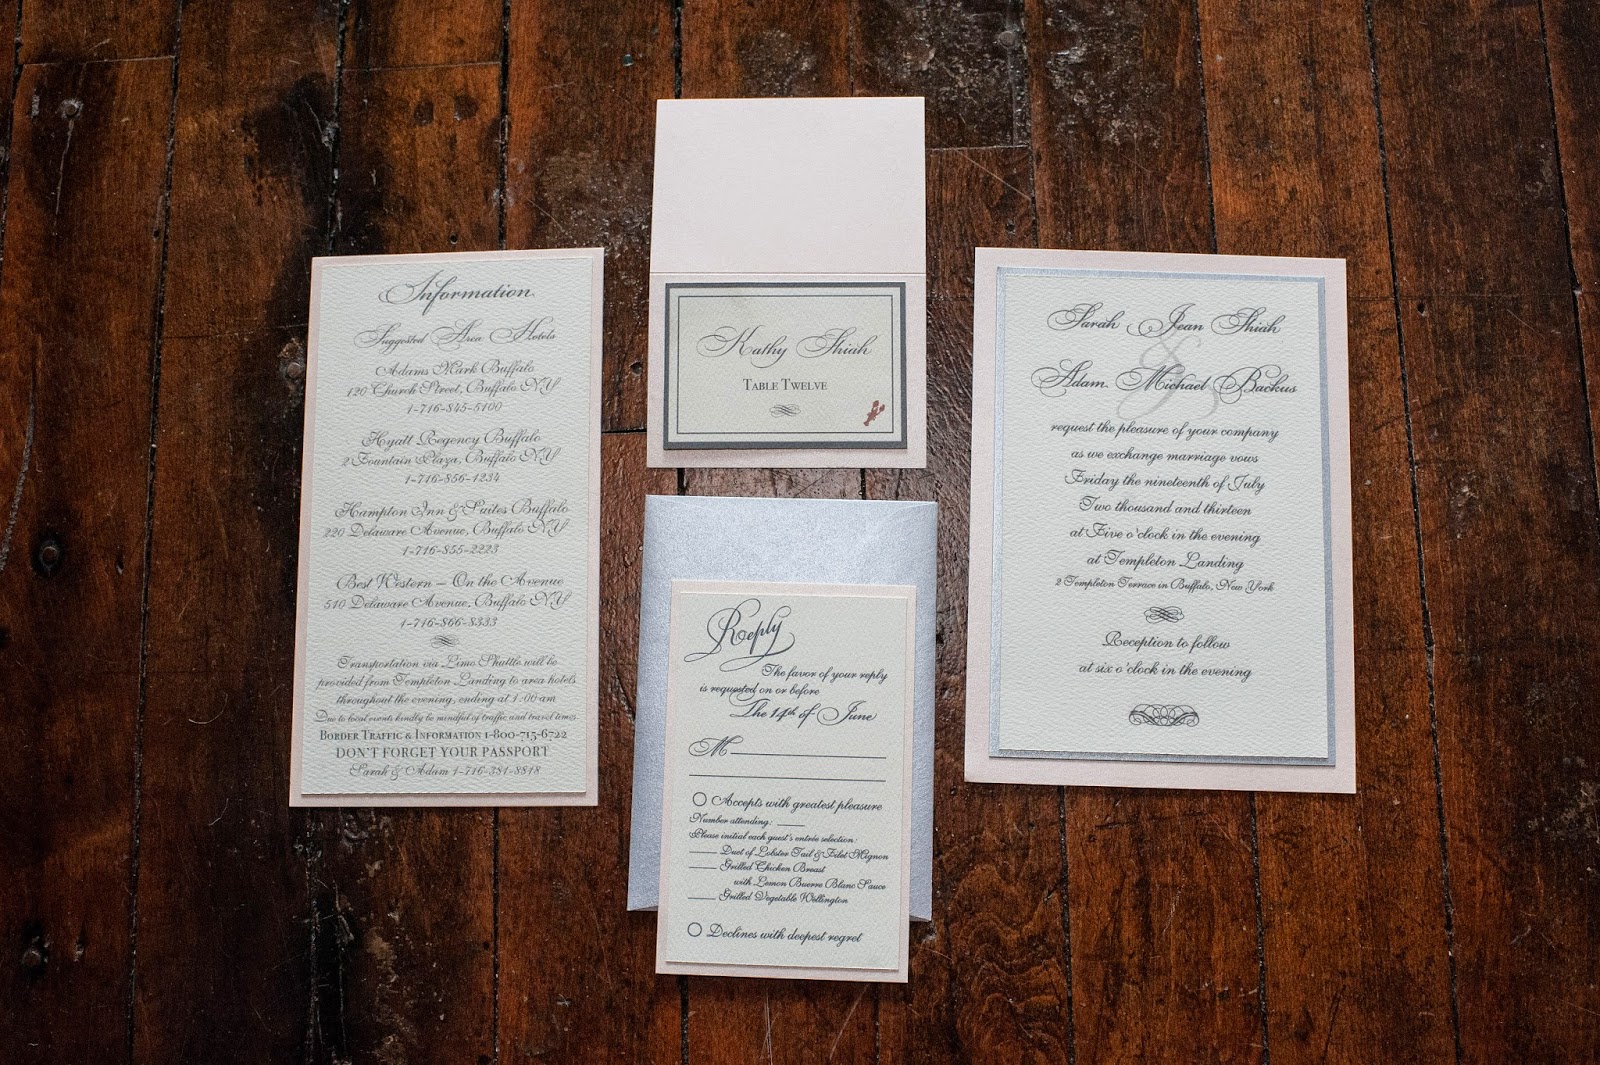 Information
Suggested Area Hotels
Adams Mark Buffalo
120 Church Street, Buffalo NY
1-716-845-5100
Hyatt Regency Buffalo
2 Fountain Plaza, Buffalo NY
1-716-856-1234
Hampton Inn & Suites Buffalo
220 Delaware Avenue, Buffalo NY
1-716-855-2223
Best Western – On the Avenue
510 Delaware Avenue, Buffalo NY
1-716-866-8333
Transportation via Limo Shuttle will be
provided from Templeton Landing to area hotels
throughout the evening, ending at 1:00 am
Due to local events kindly be mindful of traffic and travel times
Border Traffic & Information 1-800-715-6722
DON'T FORGET YOUR PASSPORT
Sarah & Adam 1-716-381-8818
Kathy Shiah
Table Twelve
Reply
The favor of your reply
is requested on or before
The 14th of June
M
Accepts with greatest pleasure
Number attending:
Please initial each guest's entrée selection:
Duet of Lobster Tail & Filet Mignon
Grilled Chicken Breast
with Lemon Buerre Blanc Sauce
Grilled Vegetable Wellington
Declines with deepest regret
Sarah Jean Shiah
&
Adam Michael Backus
request the pleasure of your company
as we exchange marriage vows
Friday the nineteenth of July
Two thousand and thirteen
at Five o'clock in the evening
at Templeton Landing
2 Templeton Terrace in Buffalo, New York
Reception to follow
at six o'clock in the evening